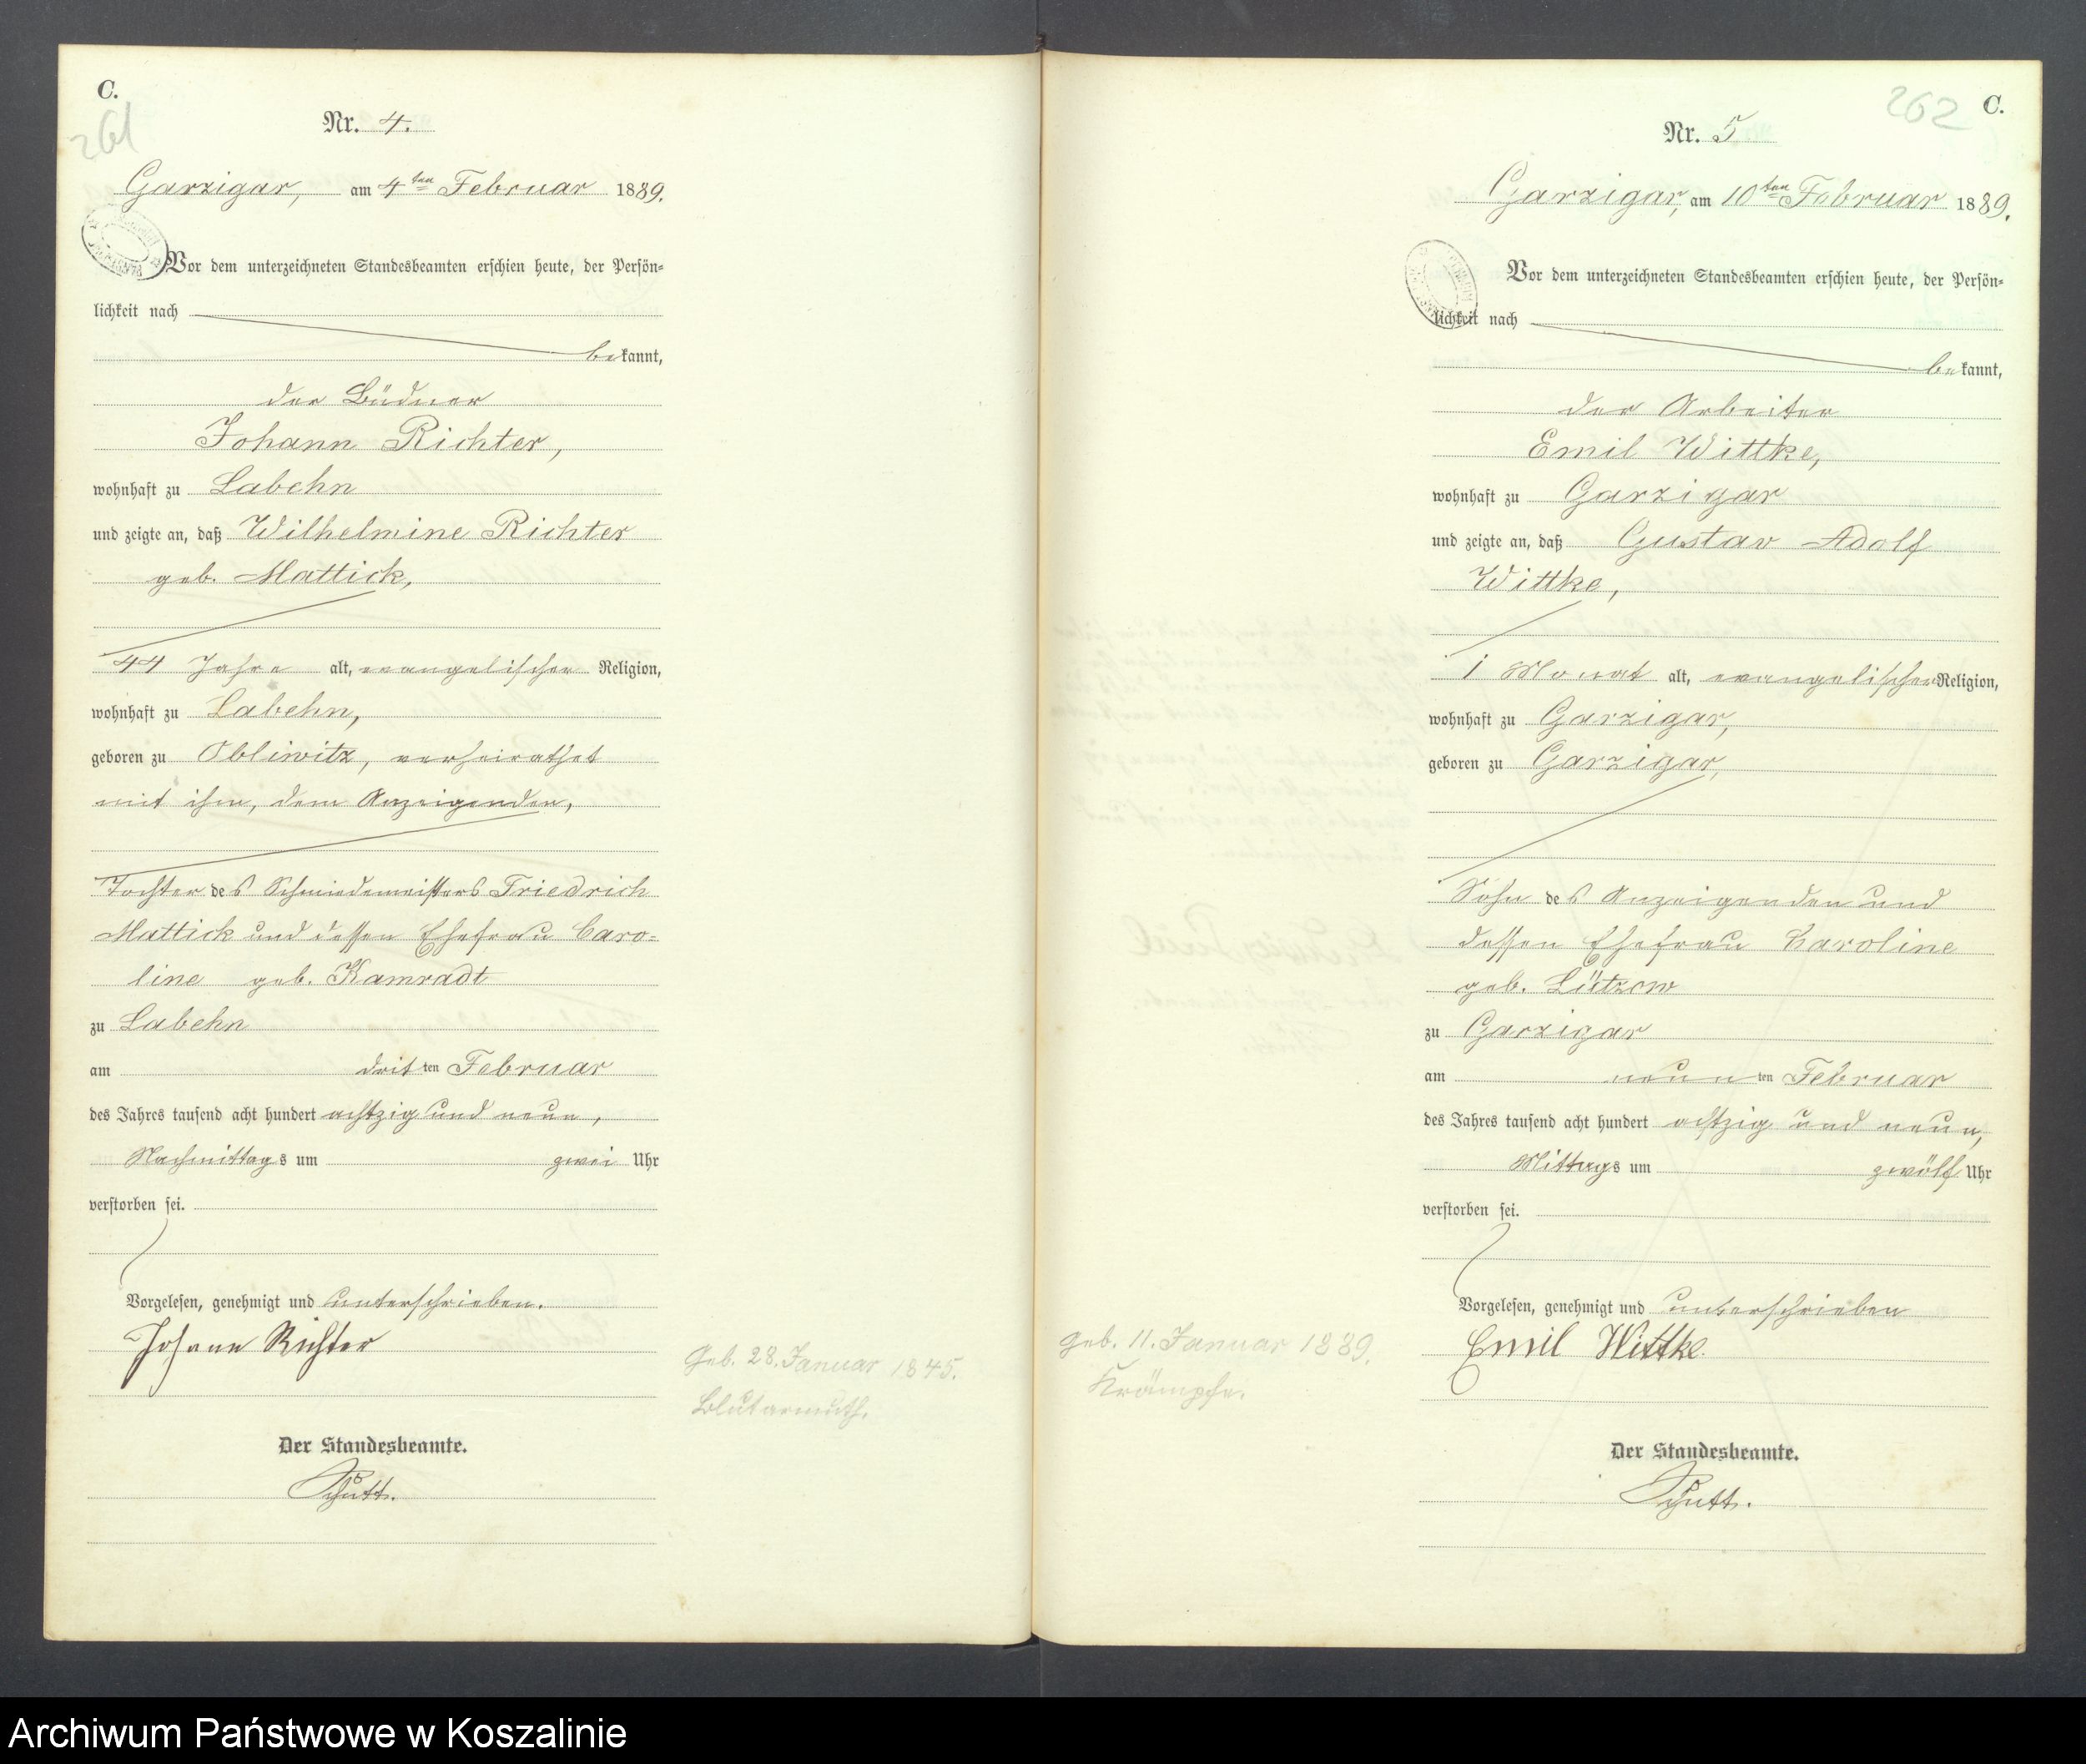 C.
261
Nr. 4.
Garzigar, am 4ten Februar 1889.
Vor dem unterzeichneten Standesbeamten erschien heute, der Persön-
lichkeit nach
bekannt,
der Büdner
Johann Richter,
wohnhaft zu Labehn
und zeigte an, daß Wilhelmine Richter
geb. Mattick,
44 Jahre alt, evangelischer Religion,
wohnhaft zu Labehn,
geboren zu Obliwitz, verheirathet
mit ihm, dem Anzeigenden,
Tochter des Schmiedemeisters Friedrich
Mattick und dessen Ehefrau Caro-
line geb. Kamradt
zu Labehn
am dritten Februar
des Jahres tausend acht hundert achtzig und neun,
Nachmittags um zwei Uhr
verstorben sei.
Vorgelesen, genehmigt und unterschrieben.
Johann Richter
Geb. 28. Januar 1845.
Blutarmuth.
Der Standesbeamte.
262
C.
Nr. 5
Garzigar, am 10ten Februar 1889.
Vor dem unterzeichneten Standesbeamten erschien heute, der Persön-
lichkeit nach
bekannt,
der Arbeiter
Emil Wittke,
wohnhaft zu Garzigar
und zeigte an, daß Gustav Adolf
Wittke,
1 Monat alt, evangelischer Religion,
wohnhaft zu Garzigar,
geboren zu Garzigar,
Sohn des Anzeigenden und
dessen Ehefrau Karoline
geb. Lützow
zu Garzigar
am neunten Februar
des Jahres tausend acht hundert achtzig und neun,
Mittags um zwölf Uhr
verstorben sei.
Vorgelesen, genehmigt und unterschrieben
Emil Wittke.
geb. 11. Januar 1889.
Krämpfe.
Der Standesbeamte.
Archiwum Państwowe w Koszalinie